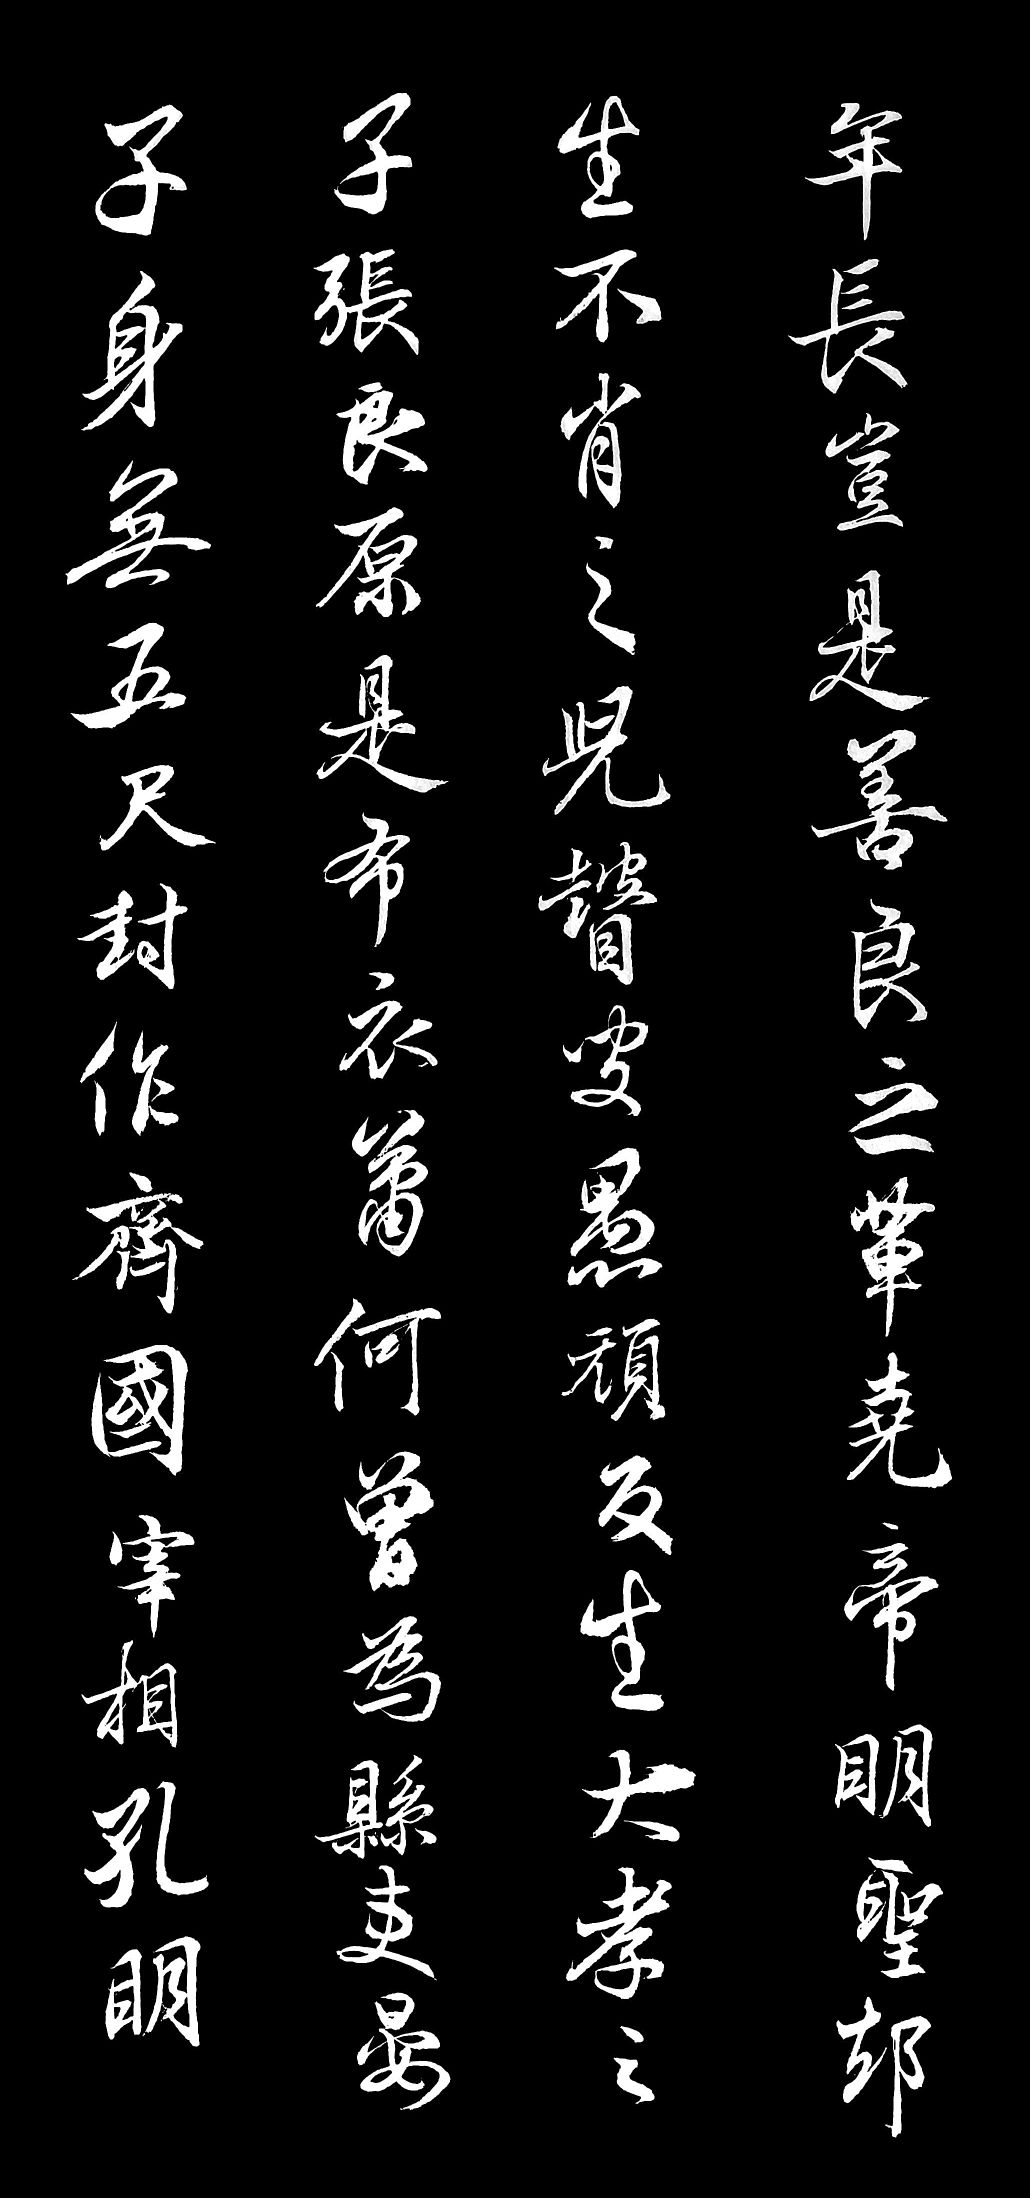 年長豈是善良之輩堯帝明聖却
生不肖之兒瞽叟愚頑反生大孝之
子張良原是布衣蕭何曾為縣吏晏
子身無五尺封作齊國宰相孔明